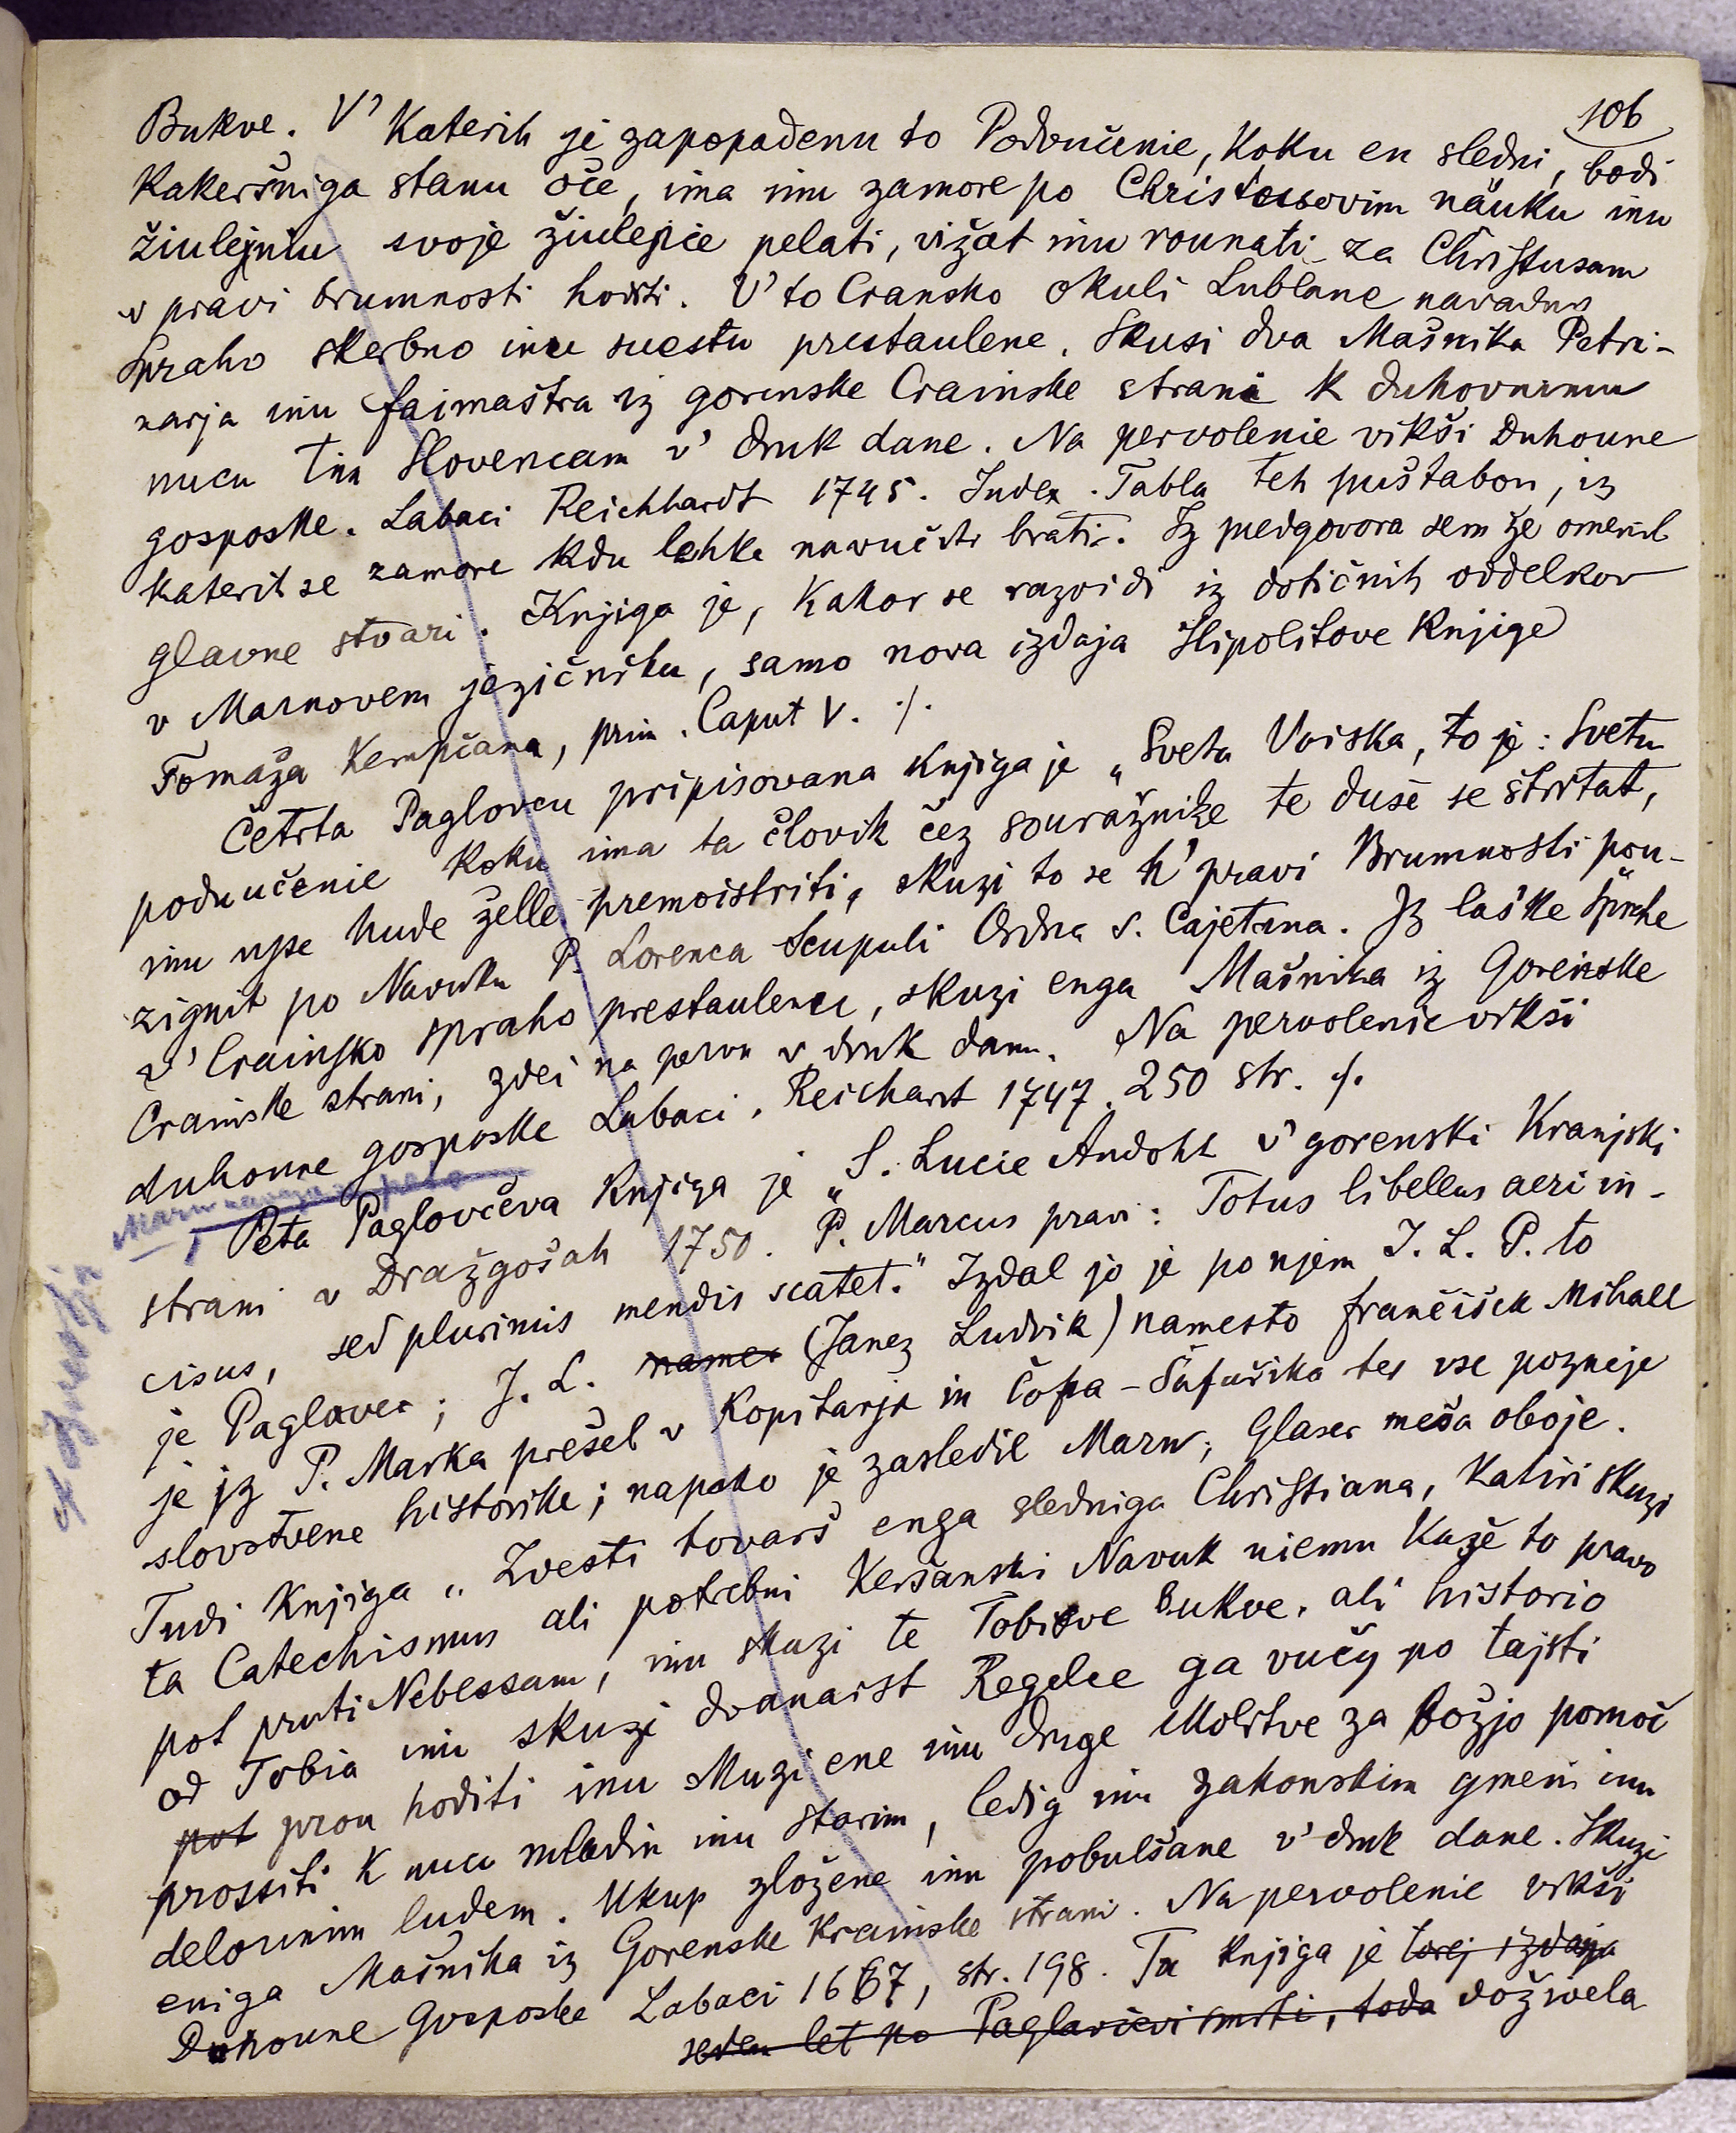 106
Bukve. V' Katerih je zapopadenu to Podvučenie, Koku en sledni, bodi
Kakeršniga stanu oče, ima inu zamore po Christusovim näuku inu
žiulejniu svoje žiulejnie pelati, vižat inu rounati za Christusam
v pravi brumnosti hoditi. V' to Cransko okuli Lublane navadno
Spraho skerbno inu svestu prestaulene. Skusi dva Mašnika Petri-
narja inu faimaštra iz gorenske Crainske strani k duhovnimu
nucu tim Slovencam v' druk dane. Na pervolenie vikši Duhoune
gosposke. Labaci Reichhardt 1745. Index. Tabla teh puštabou, iz
katerih se zamore kdu lehka navučiti brati. Iz predgovora sem že omenil
glavne stvari. Knjiga je, kakor se razvidi iz dotičnih oddelkov
v Marnovem jezičniku, samo nova izdaja Hipolitove knjige
Tomaža Kempčana, prim. Caput V. ./.
Četrta Paglovcu pripisovana knjiga je „Sveta Voiska, to je: Svetu
podvučenie koku ima ta človik čez souražnike te duše se štritat,
inu use hude želle premoistriti, skuzi to se k' pravi Brumnosti pou-
zignit po Navuku P. Lorenca Scupuli Ordna S. Cajetana. Iz laške Šprahe
v' Crainsko spraho prestaulenu, skuzi enga Mašnika iz Gorenske
Crainske strani, zdei na pervu v druk danu. Na pervolenie vikši
duhoune gosposke Labaci, Reichart 1747. 250 str. ./.
Peta Paglovčeva knjiga je „S. Lucie Andoht v' gorenski Kranjski
strani v Dražgošah 1750. P. Marcus pravi: Totus libellus aeri in-
cisus, sed plurimis mendis scatet." Izdal jo je po njem J. L. P. to
je Paglovec; J. L. (Janez Ludvik) namesto Frančišek Mihael
je iz P. Marka prešel v Kopitarja in Čopa-Šafařika ter vse pozneje
slovstvene historike; napako je zasledil Marn; Glaser meša oboje.
Tudi knjiga „Zvesti tovarš enga sledniga Christiana, katiri skuzi
ta Catechismus ali potrebni Keršanski Navuk niemu kaže to pravo
pot pruti Nebessam, inu skuzi te Tobiove Bukve, ali historio
od Tobia inu skuzi dvanaist Regelce ga vučy po tajsti
pot prou hoditi inu skuzi ene inu druge Molitve za božjo pomoč
prossiti k nucu mladim inu starim, ledig inu zakonskim gmein inu
delounim ludem. Vkup zložene inu pobulšane v' druk dane. Skuzi
eniga Mašnika iz Gorenske Krainske strani. Na pervolenie vikši
Duhoune Gosposke Labaci 1667, str. 198. Ta knjiga je torej izdaja
sedem let po Paglovčevi smrti, toda doživela